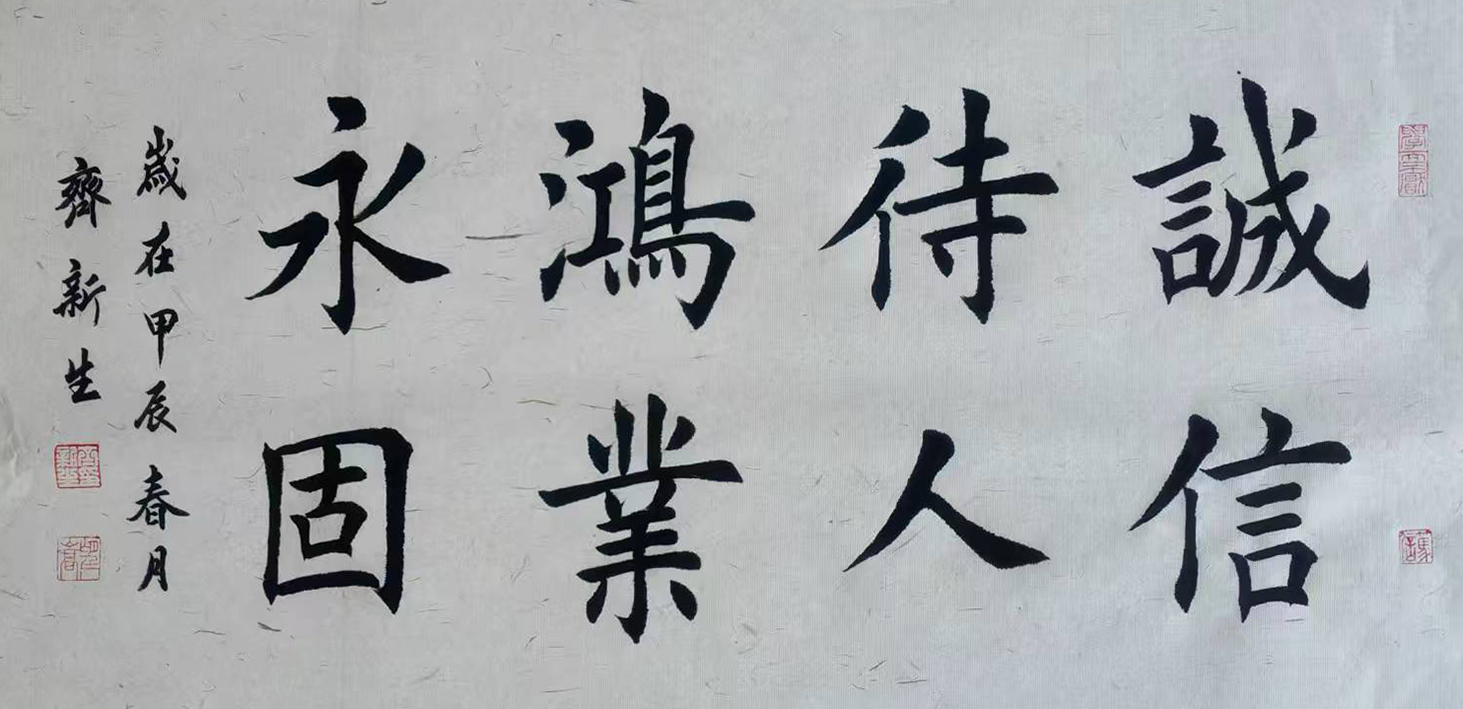 誠信
待人
鴻業
永固
歲在甲辰春月
齊新生